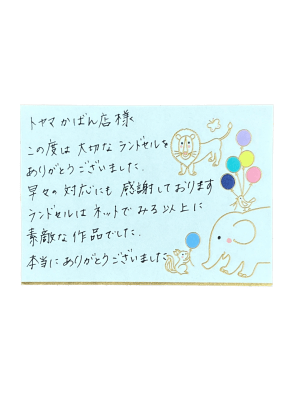 トヤマかばん店様
この度は大切なランドセルを
ありがとうございました。
早々の対応にも感謝しております
ランドセルはネットでみる以上に
素敵な作品でした。
本当にありがとうございました